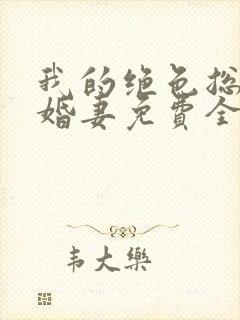 我的绝色总
婚妻免费全
韦大乐